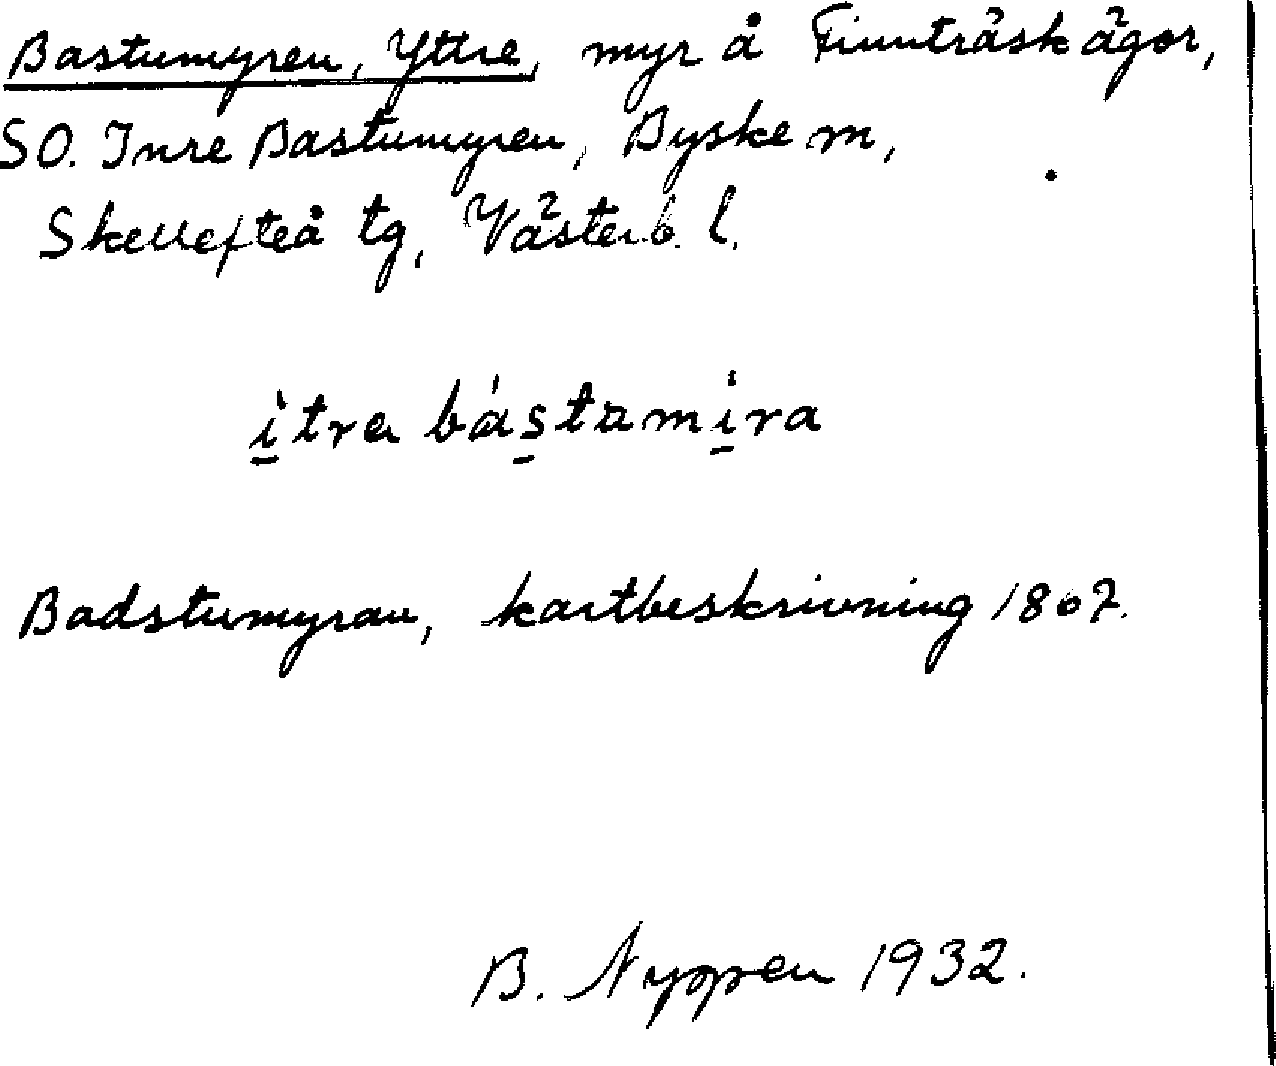 Bastumyren, Yttre, myr å Finnträsk ägor,
SO. Inre Bastumyren, Byske sn,
Skellefteå tg, Västerb. l.
i̱tra bás̱tami̱ra
Badstumyran, kartbeskrivning 1867.
B. Nyppen 1932.